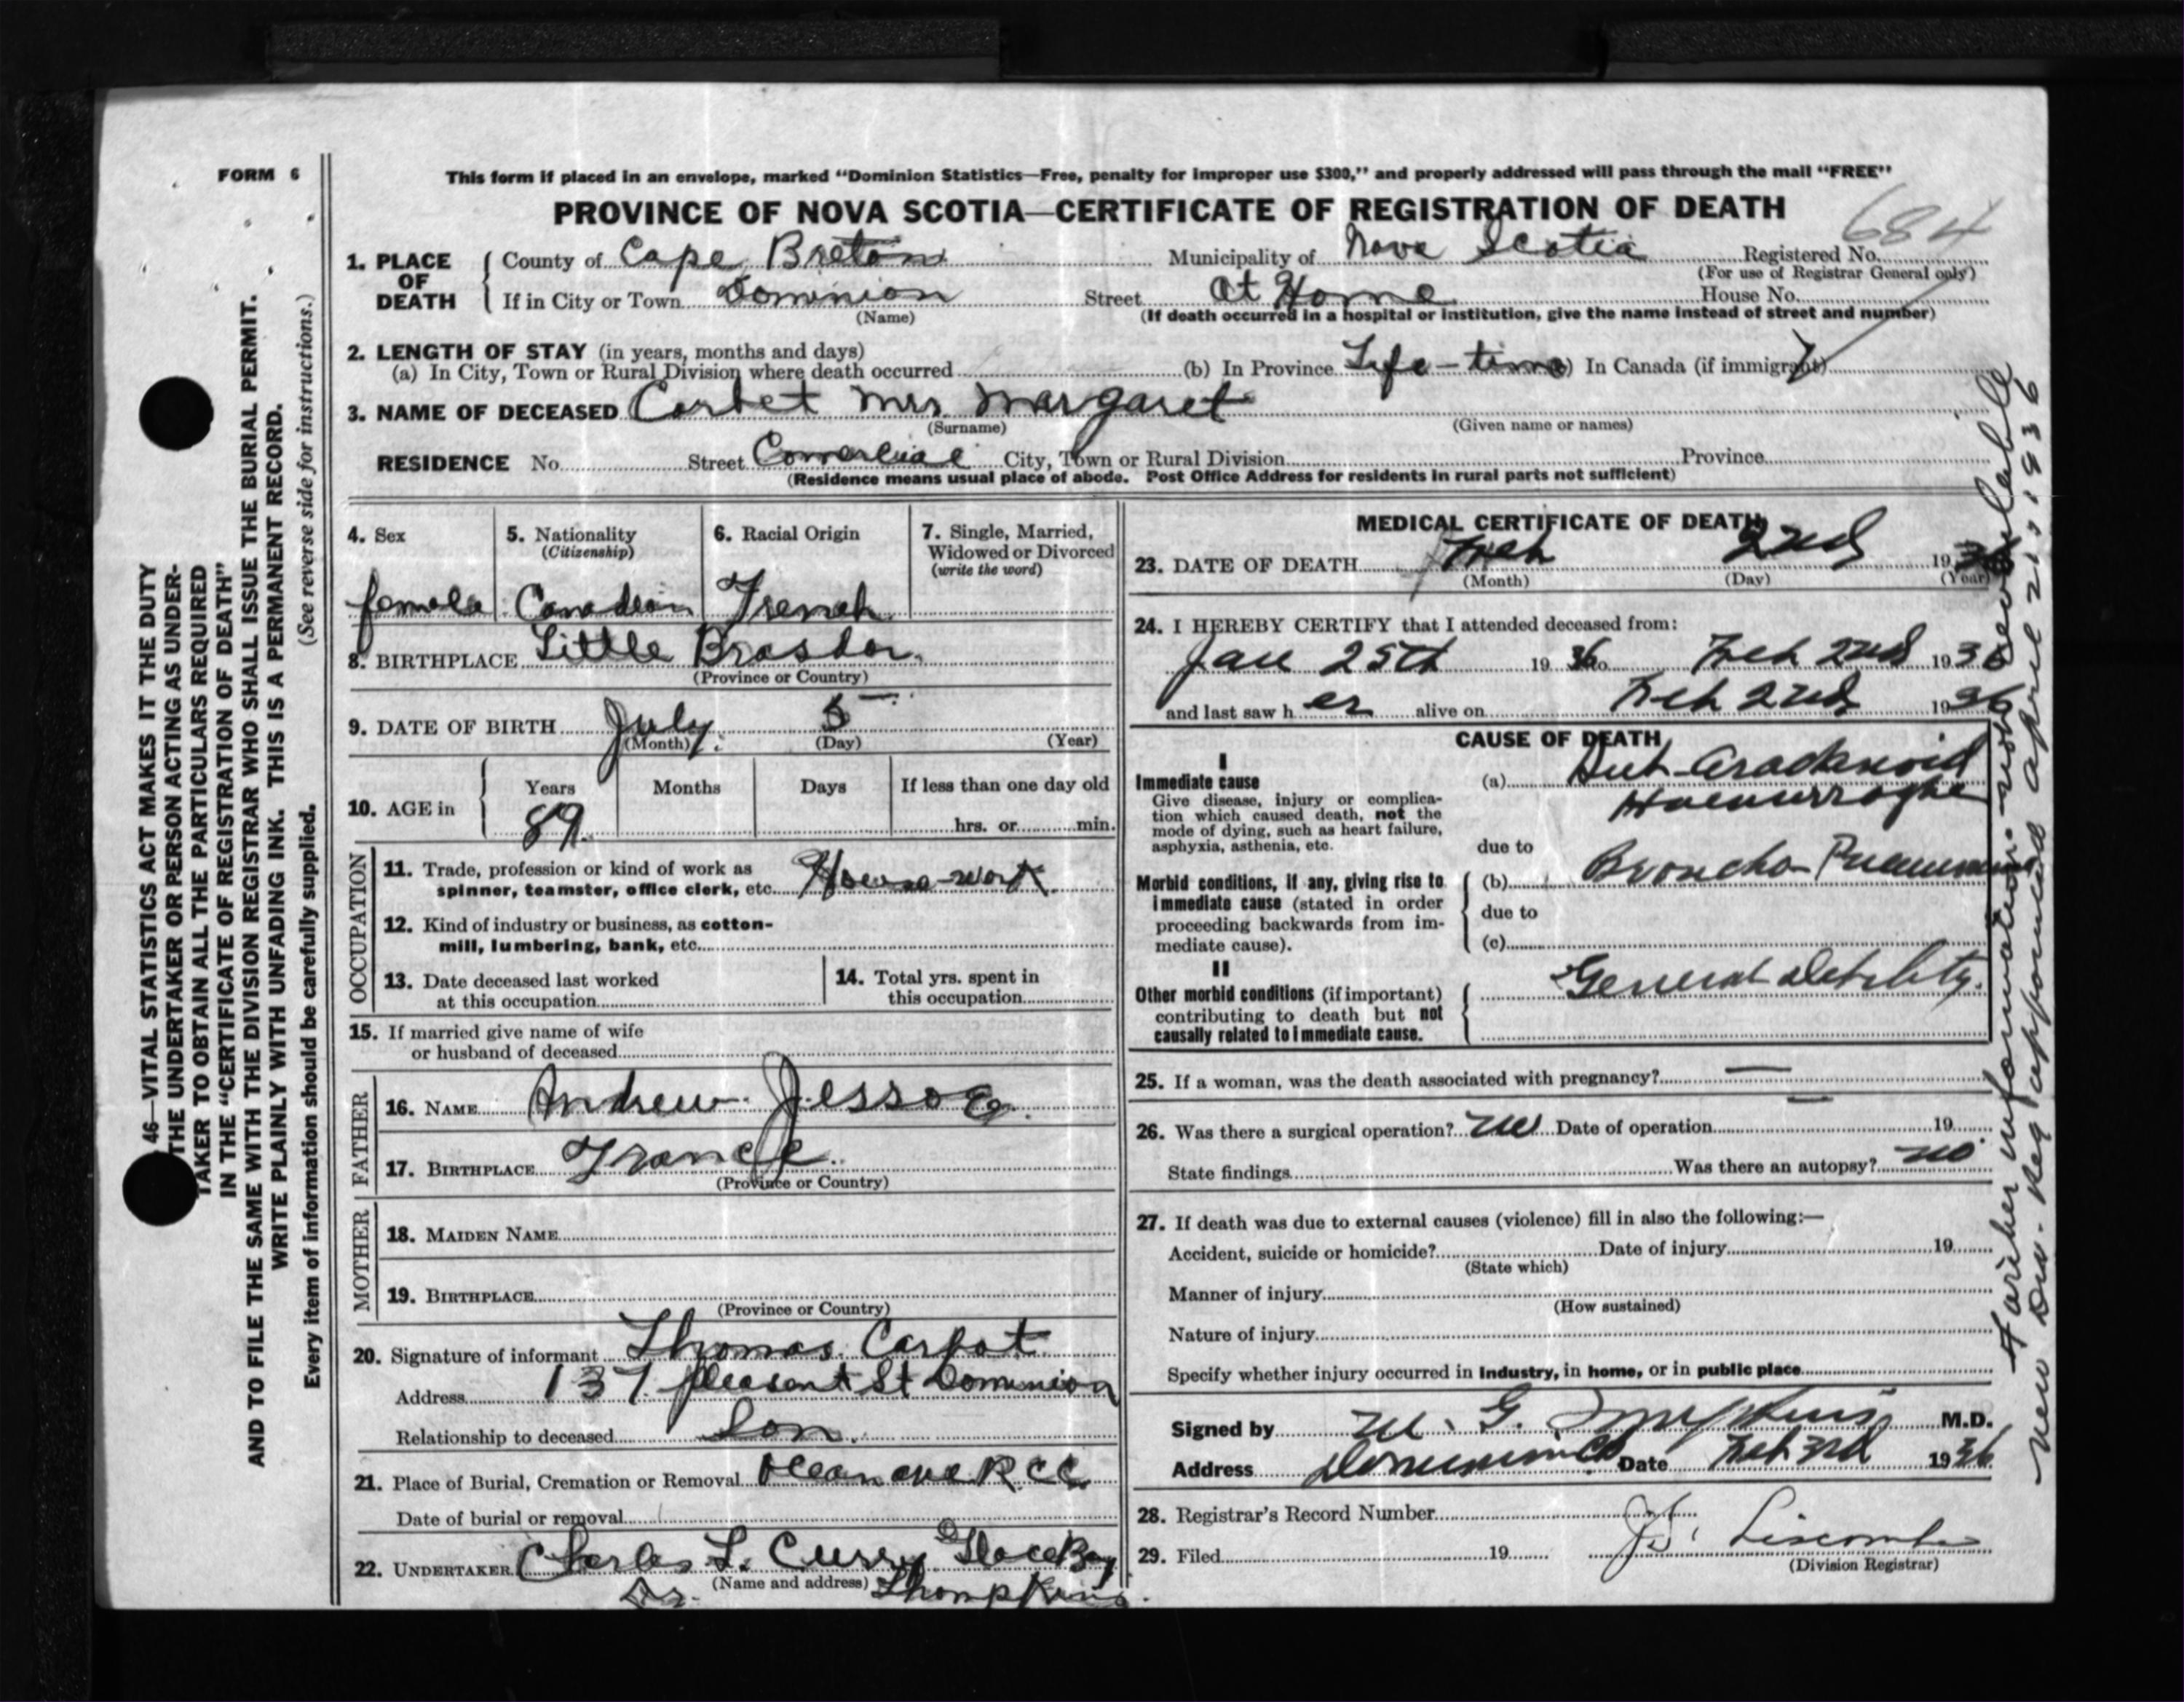 FORM 6
This form if placed in an envelope, marked "Dominion Statistics—Free, penalty for improper use $300," and properly addressed will pass through the mail "FREE"
PROVINCE OF NOVA SCOTIA—CERTIFICATE OF REGISTRATION OF DEATH
684
1. PLACE OF DEATH
County of Cape Breton Municipality of Nova Scotia Registered No.
(For use of Registrar General only)
If in City or Town Dominion Street At Home House No.
(Name) (If death occurred in a hospital or institution, give the name instead of street and number)
2. LENGTH OF STAY (in years, months and days)
(a) In City, Town or Rural Division where death occurred (b) In Province Life-time ) In Canada (if immigrant)
3. NAME OF DECEASED Corbet Mrs Margaret
(Surname) (Given name or names)
RESIDENCE No. Street City, Town or Rural Division Province
(Residence means usual place of abode. Post Office Address for residents in rural parts not sufficient)
4. Sex
female
5. Nationality
(Citizenship)
Canadian
6. Racial Origin
French
7. Single, Married,
Widowed or Divorced
(write the word)
8. BIRTHPLACE Little Brasdor
(Province or Country)
9. DATE OF BIRTH July 5
(Month) (Day) (Year)
10. AGE in
Years Months Days If less than one day old
89. hrs. or min.
OCCUPATION
11. Trade, profession or kind of work as
spinner, teamster, office clerk, etc. House-work
12. Kind of industry or business, as cotton-
mill, lumbering, bank, etc.
13. Date deceased last worked
at this occupation
14. Total yrs. spent in
this occupation
15. If married give name of wife
or husband of deceased
FATHER
16. NAME Andrew Jessoe
17. BIRTHPLACE France
(Province or Country)
MOTHER
18. MAIDEN NAME
19. BIRTHPLACE
(Province or Country)
20. Signature of informant Thomas Carbot
Address 137 Pleasant St Dominion
Relationship to deceased Son.
21. Place of Burial, Cremation or Removal R.C.C.
Date of burial or removal
22. UNDERTAKER Charles L. Curry Glace Bay
(Name and address)
Dr. Thompkins.
MEDICAL CERTIFICATE OF DEATH
23. DATE OF DEATH Feb 2nd 1936
(Month) (Day) (Year)
24. I HEREBY CERTIFY that I attended deceased from:
Jan 25th 1936 to Feb 2nd 1936
and last saw her alive on Feb 2nd 1936
CAUSE OF DEATH
I
Immediate cause
Give disease, injury or complica-
tion which caused death, not the
mode of dying, such as heart failure,
asphyxia, asthenia, etc.
(a) Sub-Arachnoid
Haemorrhage
due to
Morbid conditions, if any, giving rise to
immediate cause (stated in order
proceeding backwards from im-
mediate cause).
(b) Broncho-Pneumonia
due to
(c)
II
Other morbid conditions (if important)
contributing to death but not
causally related to immediate cause.
General debility.
25. If a woman, was the death associated with pregnancy? —
26. Was there a surgical operation? no Date of operation — 19
State findings Was there an autopsy? no
27. If death was due to external causes (violence) fill in also the following:—
Accident, suicide or homicide? Date of injury 19
(State which)
Manner of injury
(How sustained)
Nature of injury
Specify whether injury occurred in Industry, in home, or in public place
Signed by M. G. Tompkins M.D.
Address Dominion CB Date Feb 3rd 1936
28. Registrar's Record Number
29. Filed 19 Liscombe
(Division Registrar)
46—VITAL STATISTICS ACT MAKES IT THE DUTY
THE UNDERTAKER OR PERSON ACTING AS UNDER-
TAKER TO OBTAIN ALL THE PARTICULARS REQUIRED
IN THE "CERTIFICATE OF REGISTRATION OF DEATH"
AND TO FILE THE SAME WITH THE DIVISION REGISTRAR WHO SHALL ISSUE THE BURIAL PERMIT.
WRITE PLAINLY WITH UNFADING INK. THIS IS A PERMANENT RECORD.
(See reverse side for instructions.)
Every item of information should be carefully supplied.
Further information not available
New Div. Reg appointed April 21, 1936